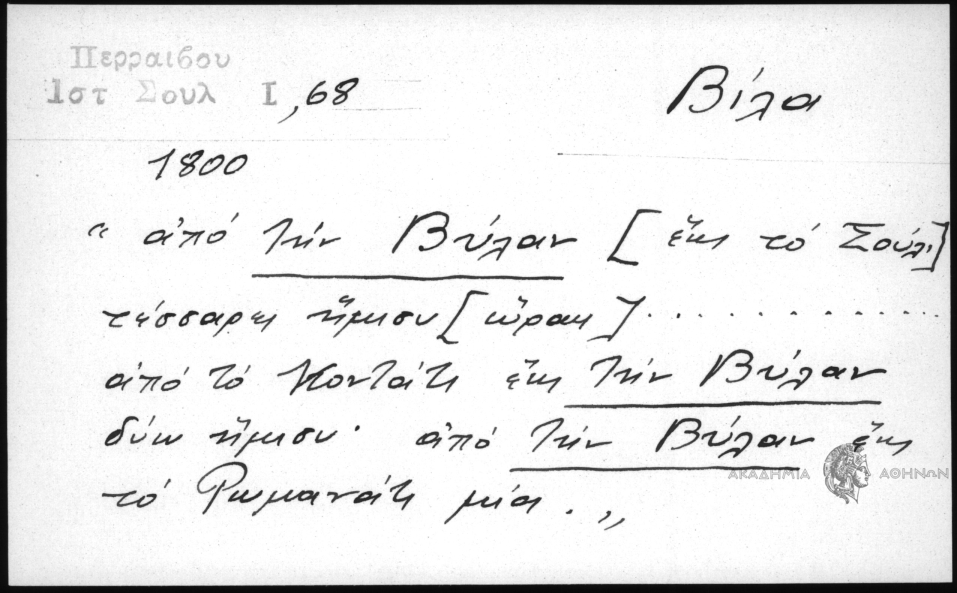 Περραιβου
1στ Σουλ Ι ,68
Βίλα
1800
" ἀπό τήν Βύλαν [ἕως τό Σούλι]
τέσσαρες ἥμισυ [ὥρας]. . . . . . . . . . . . .
ἀπό τό Κοντάτι ἕως τήν Βύλαν
δύω ἥμισυ· ἀπό τήν Βύλαν ἕως
ΑΚΑΔΗΜΙΑ ΑΘΗΝΩΝ
τό Ρωμανάτι μία . „